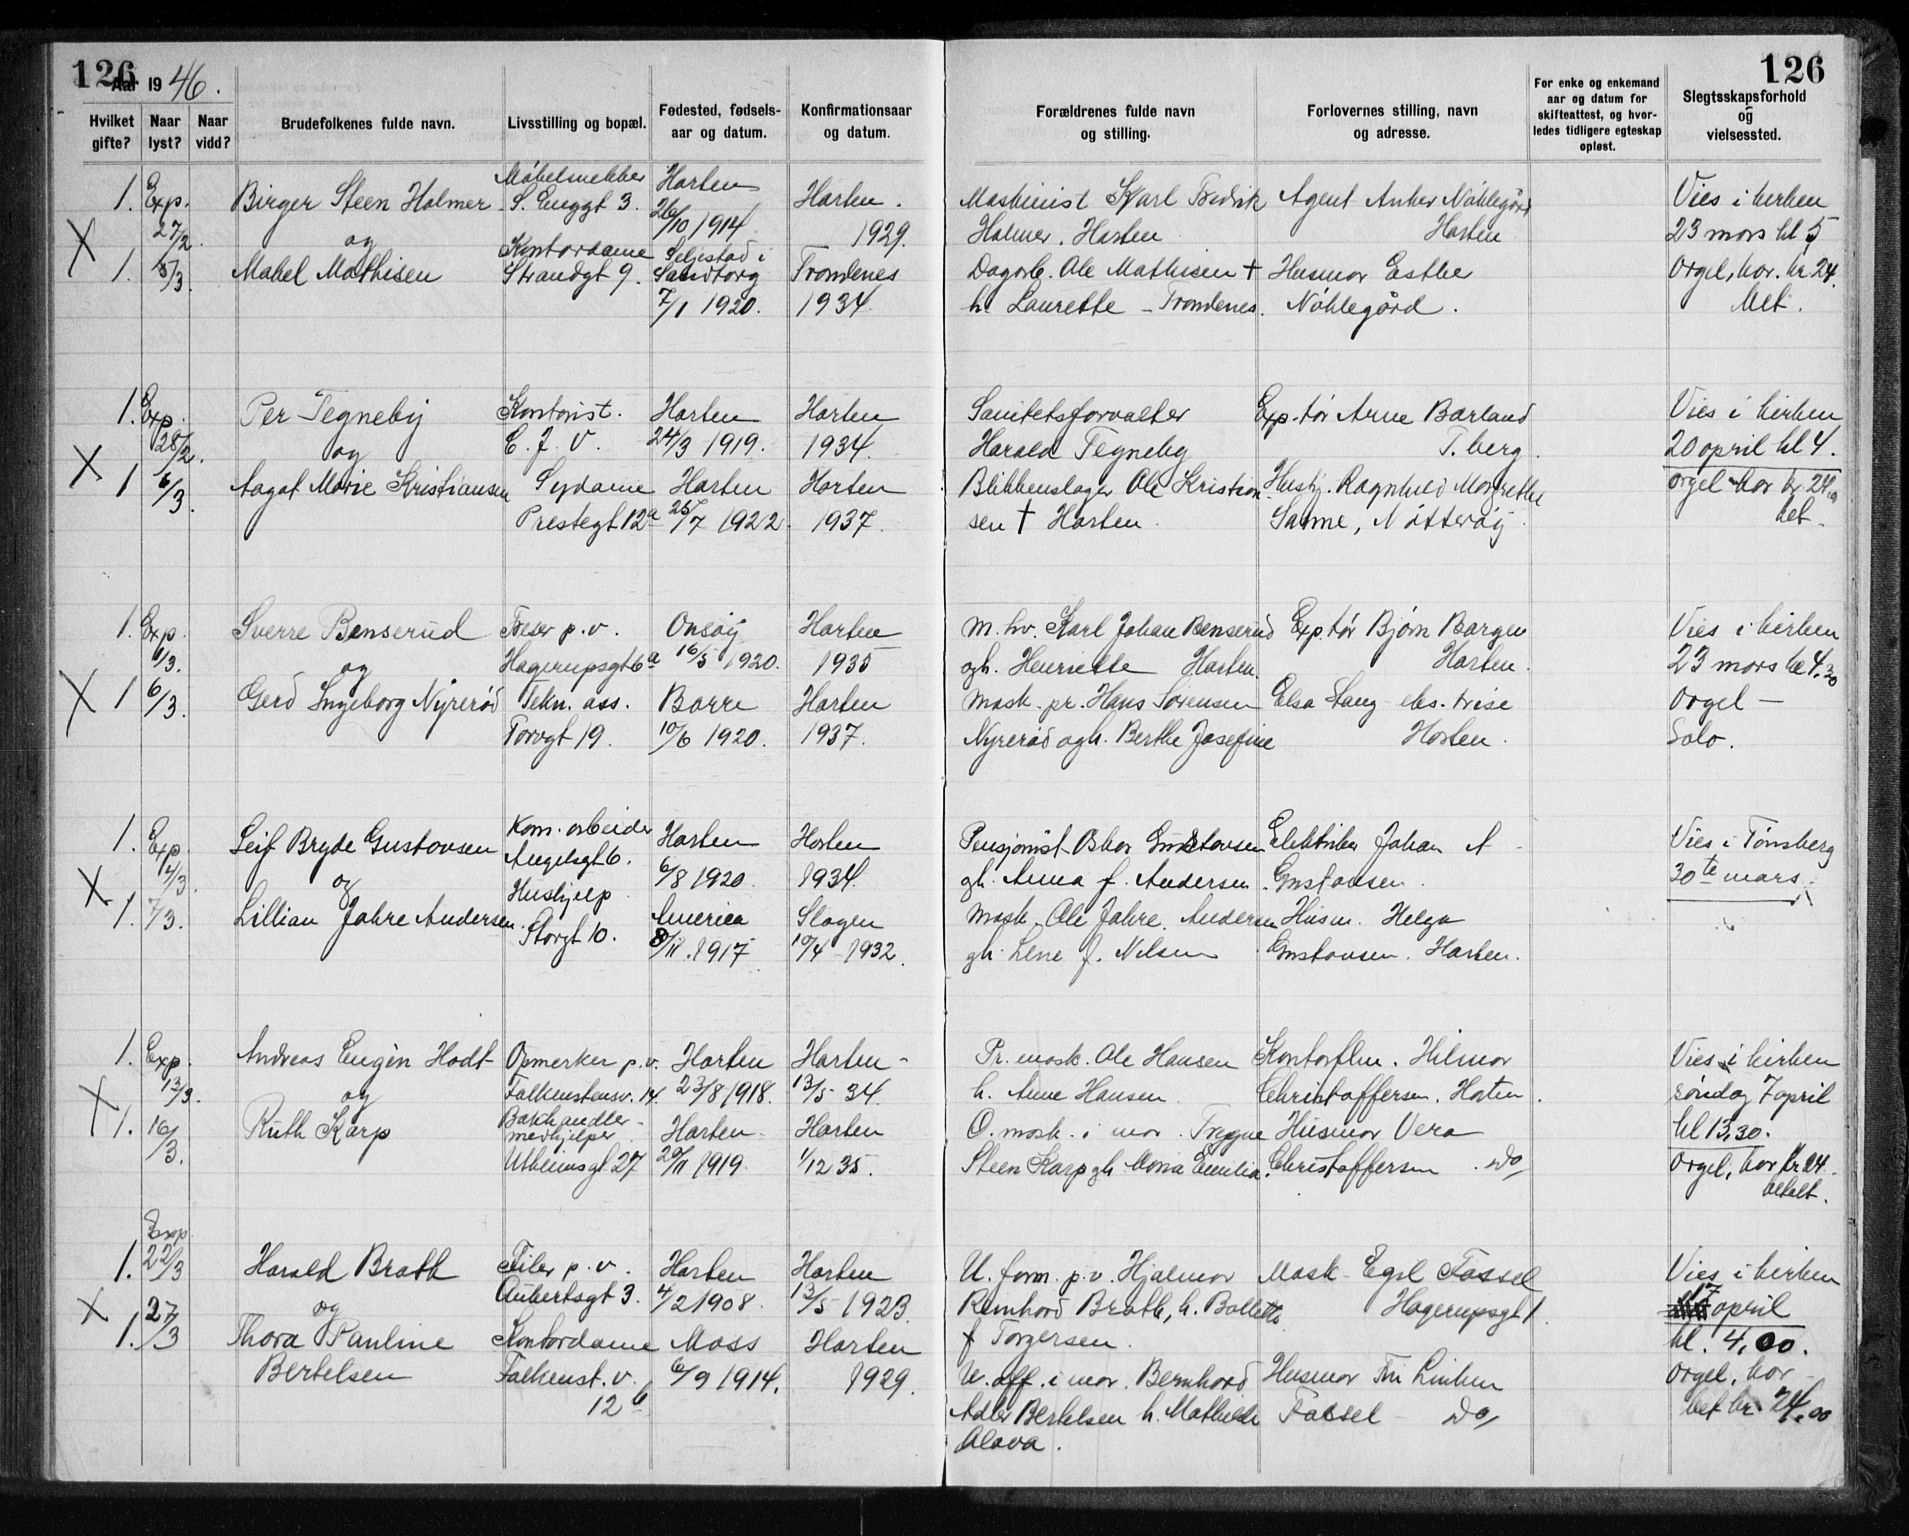 126
126
Aar 1946.
Hvilket gifte?
Naar lyst?
Naar vidd?
Brudefolkenes fulde navn.
Livsstilling og bopæl.
Fødested, fødsels-
aar og datum.
Konfirmationsaar
og datum.
Forældrenes fulde navn
og stilling.
Forlovernes stilling, navn
og adresse.
For enke og enkemand
aar og datum for
skifteattest, og hvor-
ledes tidligere egteskap
opløst.
Slegtsskapsforhold
og
vielsessted.
Møbelsnekker Horten
1. Exp. Birger Steen Holmer S. Enggt 3. Horten. Maskinist Karl Fredrik Agent Anker Nøklegård Vies i kirken
27/2. og 26/10 1914 1929. Holmer. Horten Horten 23 mars kl 5
X Kontordame Seljestad i
1. 5/3 Mabel Mathisen Strandgt 9. Sandtorg Trondenes Dagarb. Ole Mathisen † Husmor Esther Orgel, kor. kr. 24.
7/1 1920. 1934. h. Laurette - Trondenes. Nøklegård. bet.
1. Exp. Per Tegneby Kontorist. Horten Horten Sanitetsforvalter Exp.tør Arne Barland Vies i kirken
28/2. og C. J. V. 24/3 1919. 1934. Harald Tegneby T.berg. 20 april kl 4.
X 1 6/3. Aagot Marie Kristiansen Sydame Horten Horten Blikkenslager Ole Kristian- Husfr. Ragnhild Margrethe orgel kor kr. 24.
Prestegt 12a 25/7 1922. 1937. sen † Horten. Sanne, Nøtterøy bet.
1. Exp. Sverre Benserud Freser p.v. Onsøy Horten M. hv. Karl Johan Benserud Exp.tør Bjørn Borgen Vies i kirken
1/3. og Hagerupsgt 6a 16/5 1920. 1935 gh. Henriette Horten. Horten. 23 mars kl 4.30
X 1 6/3. Gerd Ingeborg Nyrerød Tekn. ass. Borre Horten Mask. pr. Hans Sørensen Elsa Stang eks. trise Orgel -
Torvgt 19. 10/6 1920. 1937. Nyrerød og h. Berthe Josefine Horten. Solo.
1. Exp. Leif Bryde Gustavsen Kom. arbeider Horten Horten Pensjonist Oskar Gustavsen Elektriker Johan A Vies i Tønsberg
12/3. og Angelsgt 6. 6/8 1920. 1934. gh. Anna f. Andersen. Gustavsen. 30te mars.
X Hushjelp
1. 7/3. Lillian Jahre Andersen. Storgt 10. America Slagen Mask. Ole Jahre Andersen Husm. Helga
8/11. 1917 10/4 - 1932. gh. Lene f. Nilsen Gustavsen. Horten.
1. Exp. Andreas Eugen Hodt Opmerker p.v. Horten Horten - Pr. mask. Ole Hansen Kontorflm. Hilmar Vies i kirken
13/3. og Falkenstensv. 14. 23/8 1918. 13/5 34. h. Anne Hansen. Christoffersen. Horten. søndag 7 april
X 1. 16/3. Ruth Karp Bokhandler-
medhjelper Horten Horten O. mask. i mar. Trygve Husmor Vera kl 13,30.
Utheimsgt 27 20/11 1919. 1/12 35. Steen Karp gh. Maria Emilia. Christoffersen do, Orgel, kor kr 24.
betalt.
Exp
1. 22/3 Harald Brath Filer p.v. Horten Horten U. form. p.v. Hjalmar Mask. Egil Fossel Vies i kirken
og Aubertsgt 3. 4/2 1908. 13/5 1923. Reinhard Brath, h. Bollette Hagerupsgt 1. 17 april
X 1. 27/3 Thora Pauline Kontordame Moss Horten f Torgersen. kl. 4,00.
Bertelsen Falkenst. v. 6/9 1914. 1929. U. off. i mar. Bernhard Husmor Orgel, kor
12b Adler Bertelsen h. Mathilde Fossel - do, bet kr. 24,00
Olava.